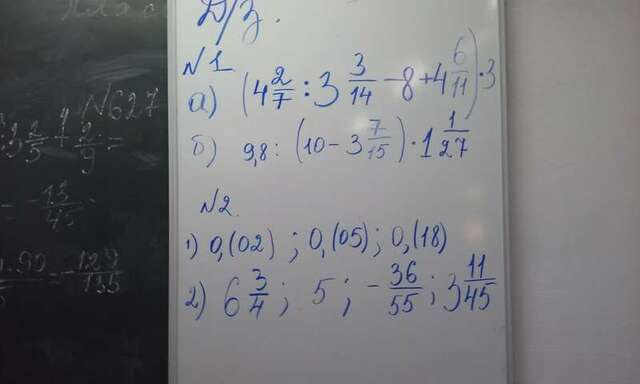 Клас
N627
3 2/5 + 2/9 =
= -13/45
= -129/135
Д/з.
N1
а) (4 2/7 : 3 3/14 - 8 + 4 6/11) · 3
б) 9,8 : (10 - 3 7/15) · 1 1/27
N2.
1) 0,(02) ; 0,(05) ; 0,(18)
2) 6 3/4 ; 5 ; - 36/55 ; 3 11/45